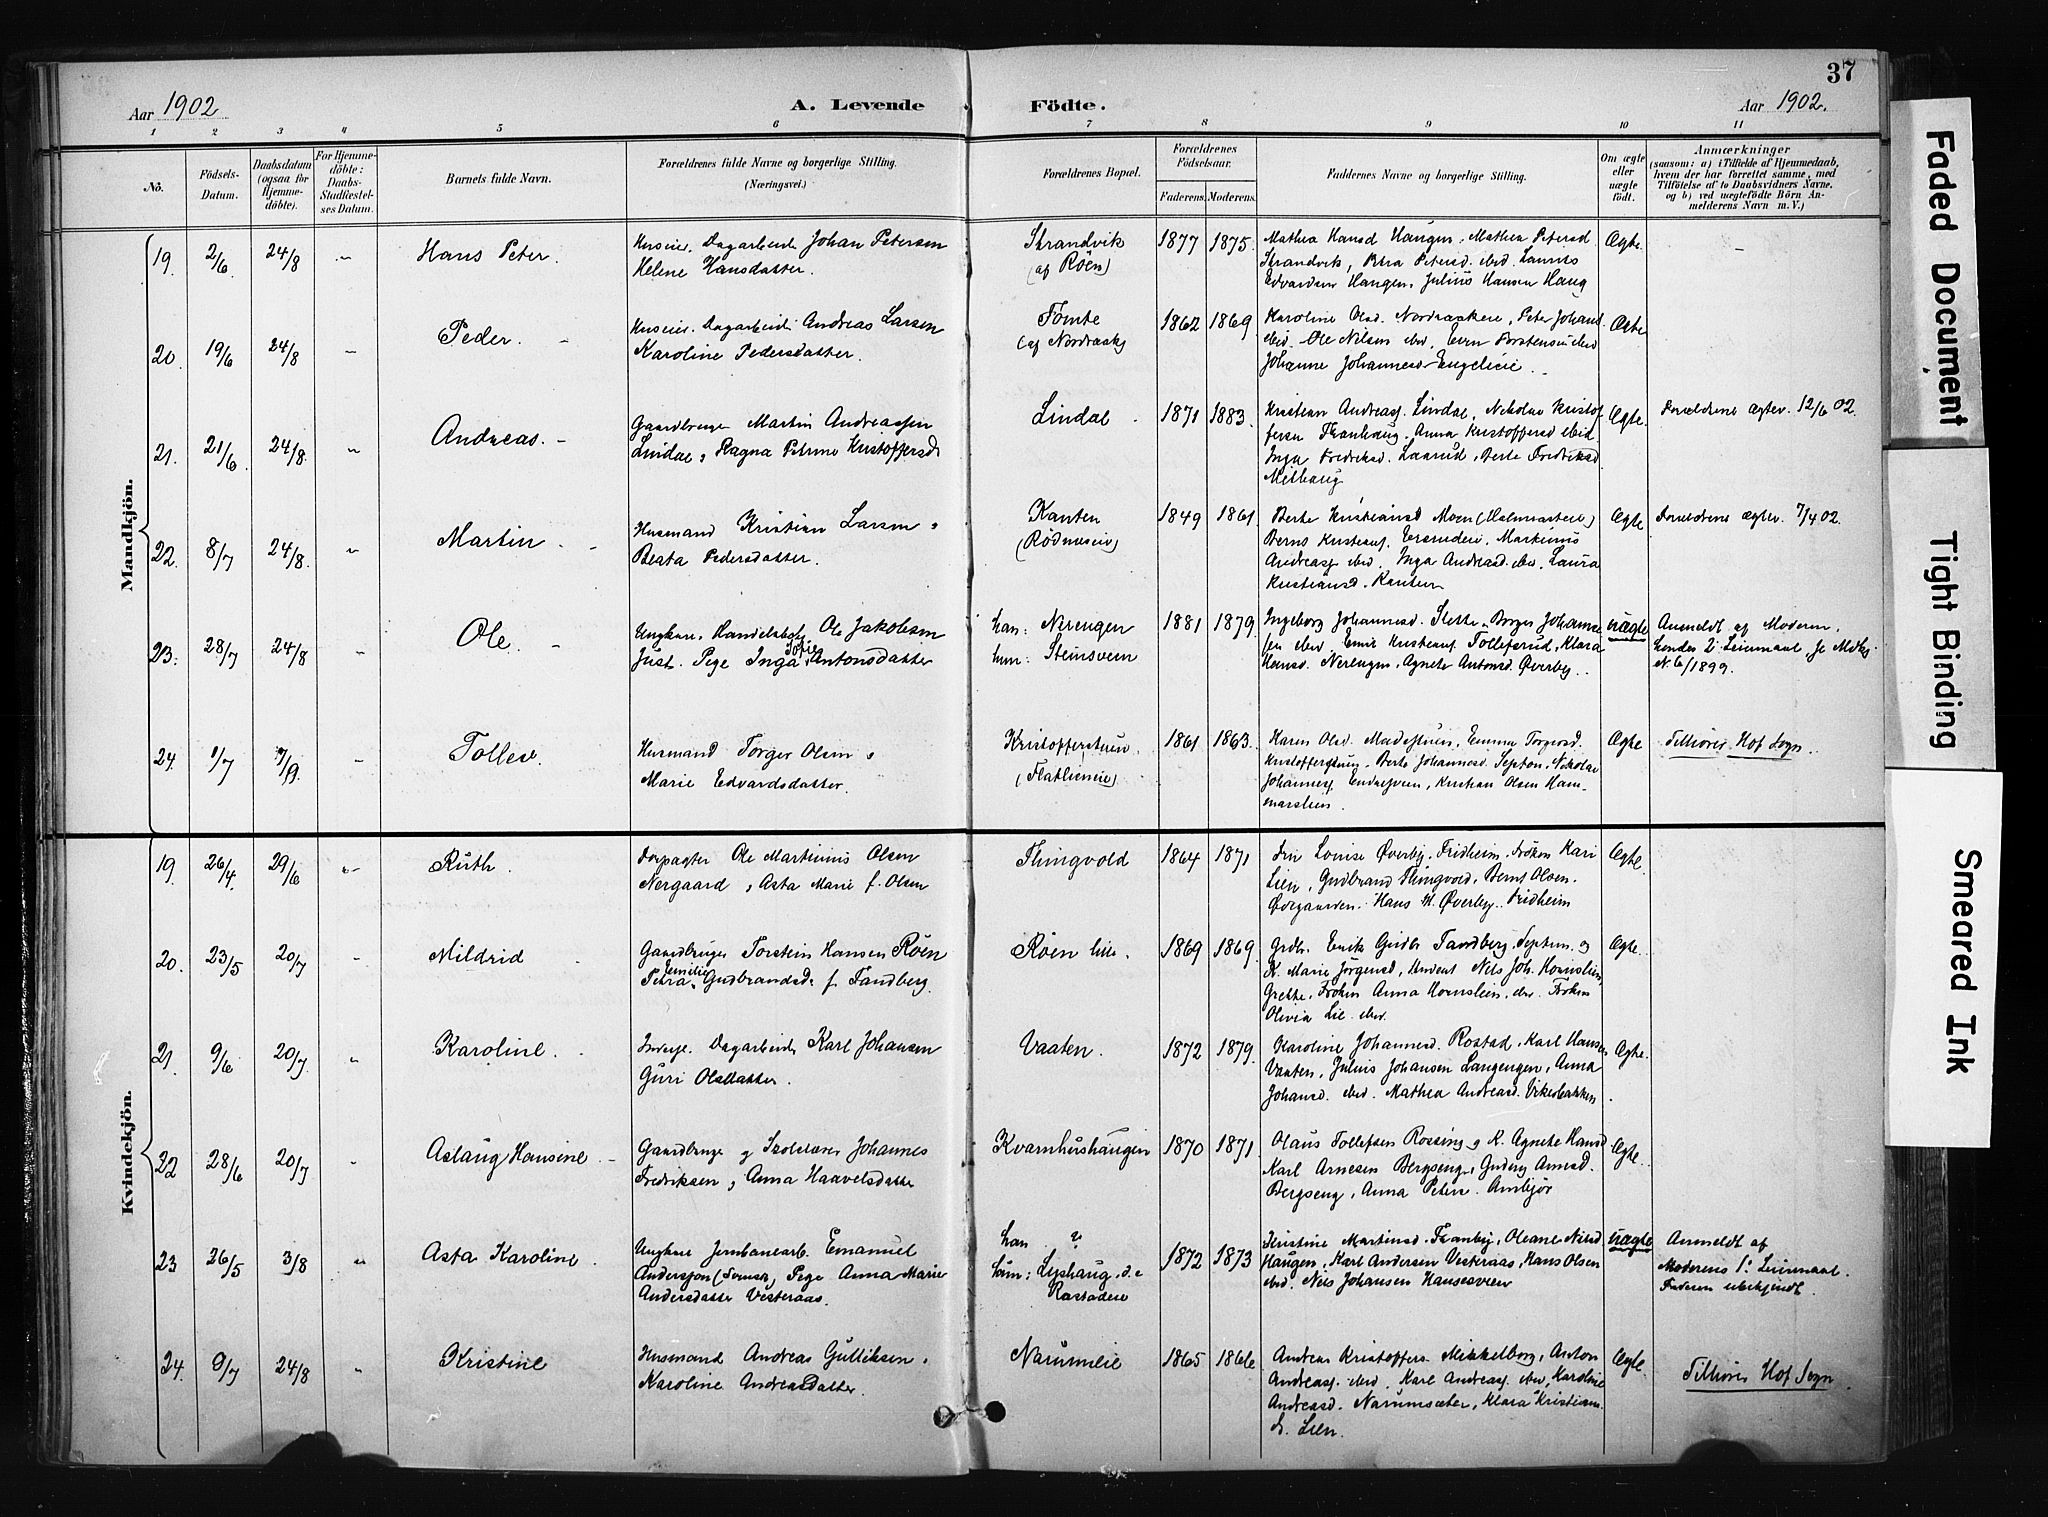 37
Aar 1902
A. Levende Födte.
Aar 1902.
1 2 3 4 5 6 7 8 9 10 11
No.
Födsels-Datum.
Daabsdatum (ogsaa for Hjemme-döbte).
For Hjemme-döbte: Daabs-Stadfæstel-ses Datum.
Barnets fulde Navn.
Forældrenes fulde Navne og borgerlige Stilling. (Næringsvei.)
Forældrenes Bopæl.
Forældrenes Födselsaar.
Faderens. Moderens.
Faddernes Navne og borgerlige Stilling.
Om ægte eller uægte födt.
Anmærkninger
(saasom: a) i Tilfælde af Hjemmedaab,
hvem der har forrettet samme, med
Tilföielse af to Daabsvidners Navne.
og b) ved uægtefödte Börn An-
melderens Navn m. V.)
Mandkjön.
19. 2/6 24/8 Hans Peter.
Huseier. Dagarbeid. Johan Petersen
Helene Hansdatter.
Strandvik
(af Röen)
1877 1875.
Mathea Hansd Haugen, Mathea Petersd
Strandvik, Petra Petersd. ibid. Laurits
Edvardsen Haugen, Julius Hansen Haug
Ægte.
20. 19/6 24/8 Peder.
Huseier. Dagarbeid. Andreas Larsen
Karoline Pedersdatter.
Tömte
1862 1869
Karoline Olsd. Peter Johans.
ibid. Ole Nilsen ibid,
Johanne Johannesd
Ægte
21. 21/6 24/8. Andreas.
Gaardbruger Martin Andreassen
Lindal, Ragna Petrine Kristoffersd
Lindal
1871 1883.
Kristian Andreass. Lindal, Nikolai Kristof-
fersen Anna Kristoffersd ibid.
Inga Fredriksd. Berte Fredriksd
Ægte. Forældrene ægtev. 12/6 02.
22. 8/7 24/8. Martin
Husmand Kristian Larsen,
Beata Pedersdatter.
Kanten
1849 1861
Berte Kristiansd Moen
Bernt Martinius
Andreass ibid. Inga Andreasd. ibid, Laura
Kristiansd. Kanten
Ægte Forældrene ægtev. 7/4 02.
23. 28/7 24/8 Ole.
Ungkarl. Handelsbetj. Ole Jakobsen
Pige Inga Sofie Antonsdatter
han: Nerengen
hun: Steinsveen
1881 1879.
Ingeborg Johannesd. Slette, Borger Johannes-
sen ibid, Emil Kristians. Tollefsrud, Klara
Hansd. Nerengen, Agnete Antonsd. Överby.
uægte
Anmeldt af Moderen,
hendes 2' Leiermaal,
N. 6/1899.
24. 1/7 7/9. Tollev.
Husmand Torger Olsen,
Marie Edvardsdatter.
Kristofferstuen.
(Flatlieneie)
1861 1863.
Karen Olsd. Emma Torgersd.
Kristofferstuen. Berte Johannesd. Septon, Nikolai
Johannes. Kristian Olsen Ham-
marstuen.
Ægte Tilhörer Hof Sogn.
Kvindekjön.
19. 26/4. 29/6 Ruth.
Forpagter Ole Martinius Olsen
Nergaard, Asta Marie f. Olsen
Thingvold
1864 1871
Fru Louise Överby. Fridheim. Fröken Kari
Lien, Gudbrand Thingvold, Bernt Olsen.
Övergaarden. Hans M. Överby. Fridheim
Ægte.
20. 23/5 20/7 Mildrid
Gaardbruger Torstein Hansen Röen
Petra Emilie Gudbrandsd. f. Fandberg.
Röen lille.
1869 1869.
Grdbr. Emik Gudbr Fandberg. Septon. og
K. Marie Jörgensd, Student Nils Joh. Hornslien,
Grette. Fröken Anna Hornslien, ibid. Fröken
Olivia Lie. ibid.
Ægte.
21. 9/6 20/7. Karoline.
Inderst. Dagarbeid. Karl Johansen
Guri Olsdatter.
Vaaten.
1872 1879.
Karoline Johannesd. Rostad, Karl Hansen
Vaaten, Julius Johansen Langengen, Anna
Johansd. ibid. Mathea Andreasd.
Ægte.
22 28/6 20/7 Aslaug Hansine
Gaardbruger og Skolelærer Johannes
Fredriksen, Anna Haavelsdatter
Kvarnhushaugen
1870 1871
Olaus Tollefsen Rossing og K. Agnete Hansd
Karl Arnesen Bergseng, Gudny Arnesd.
Bergseng, Anna Peters.
Ægte.
23 26/5 3/8 Asta Karoline.
Ungkarl Jernbanearb. Emanuel
Andersson (Svensk), Pige Anna Marie
Andersdatter Vesteraas.
han ?
hun:
1872 1873
Kristine Martinsd. Oleane Nilsd
Haugen, Karl Andersen Vesteraas, Hans Olsen
ibid. Nils Johansen Hansesveen
uægte
Anmeldt af
Moderens 1' Leiermaal.
Faderen ubekjendt.
24. 9/7 24/8 Kristine
Husmand Andreas Gulliksen.
Karoline Andreasdatter.
Narumeie
1865 1866
Andreas Kristoffers. Mikkelborg, Anton
Andreass. ibid. Karl Andreass. ibid, Karoline
Andreasd. Narumsæter, Klara Kristians-
d. Lien.
Ægte. Tilhörer Hof Sogn.
Faded Document
Tight Binding
Smeared Ink